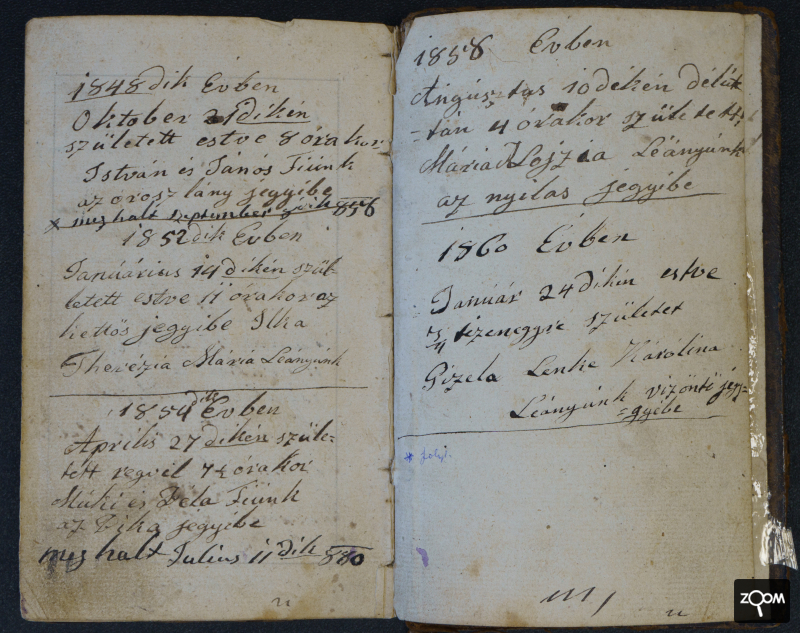 1848dik Évben
Oktober 21dikén
született estve 8 órakor
István és János Fiúnk
az orosz lány jegyibe
x meghalt September 856
1852dik Évben
Januárius 14dikén szül-
letett estve 11 órakor az
kettős jegyibe Ilka
Therézia Mária Leányúnk
1854dik Évben
Április 27dikén szüle-
tett regvél 7 órakor
és Béla Fiúnk
az Bika jegyibe
meg halt Julius 11dik 880
1858 Évben
Augústus 10dikén délút
-tán 4 órakor született
Mária Lojzia Leányúnk
az nyilas jegyibe
1860 Évben
Január 24dikén estve
3/4 tizenegyre születet
Gizela Lenke Károlina
Leányúnk vizöntő jegy-
=gyibe
ZOOM